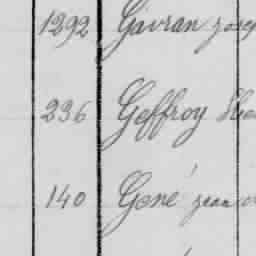 1292 Gavran
236 Geffroy
140 Gené jean